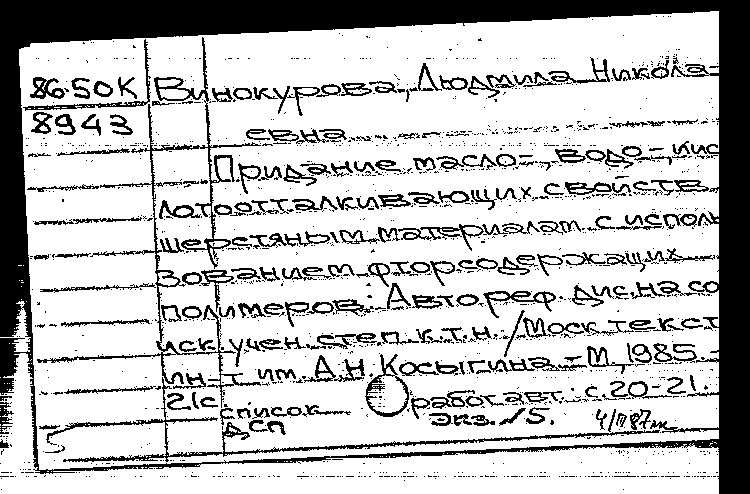 86-50К Винокурова, Людмила Никола-
8943 евна
Придание масло-, водо-, кис
лотоотталкивающих свойств
шерстяным материалам с исполь
зованием фторсодержащих
полимеров: Автореф. дис. на со
иск. учен. степ. к.т.н. / Моск. текст
ин-т им. А.Н. Косыгина. - М, 1985 -
21с список работ авт.: с. 20-21.
ДСП экз. 15.
5